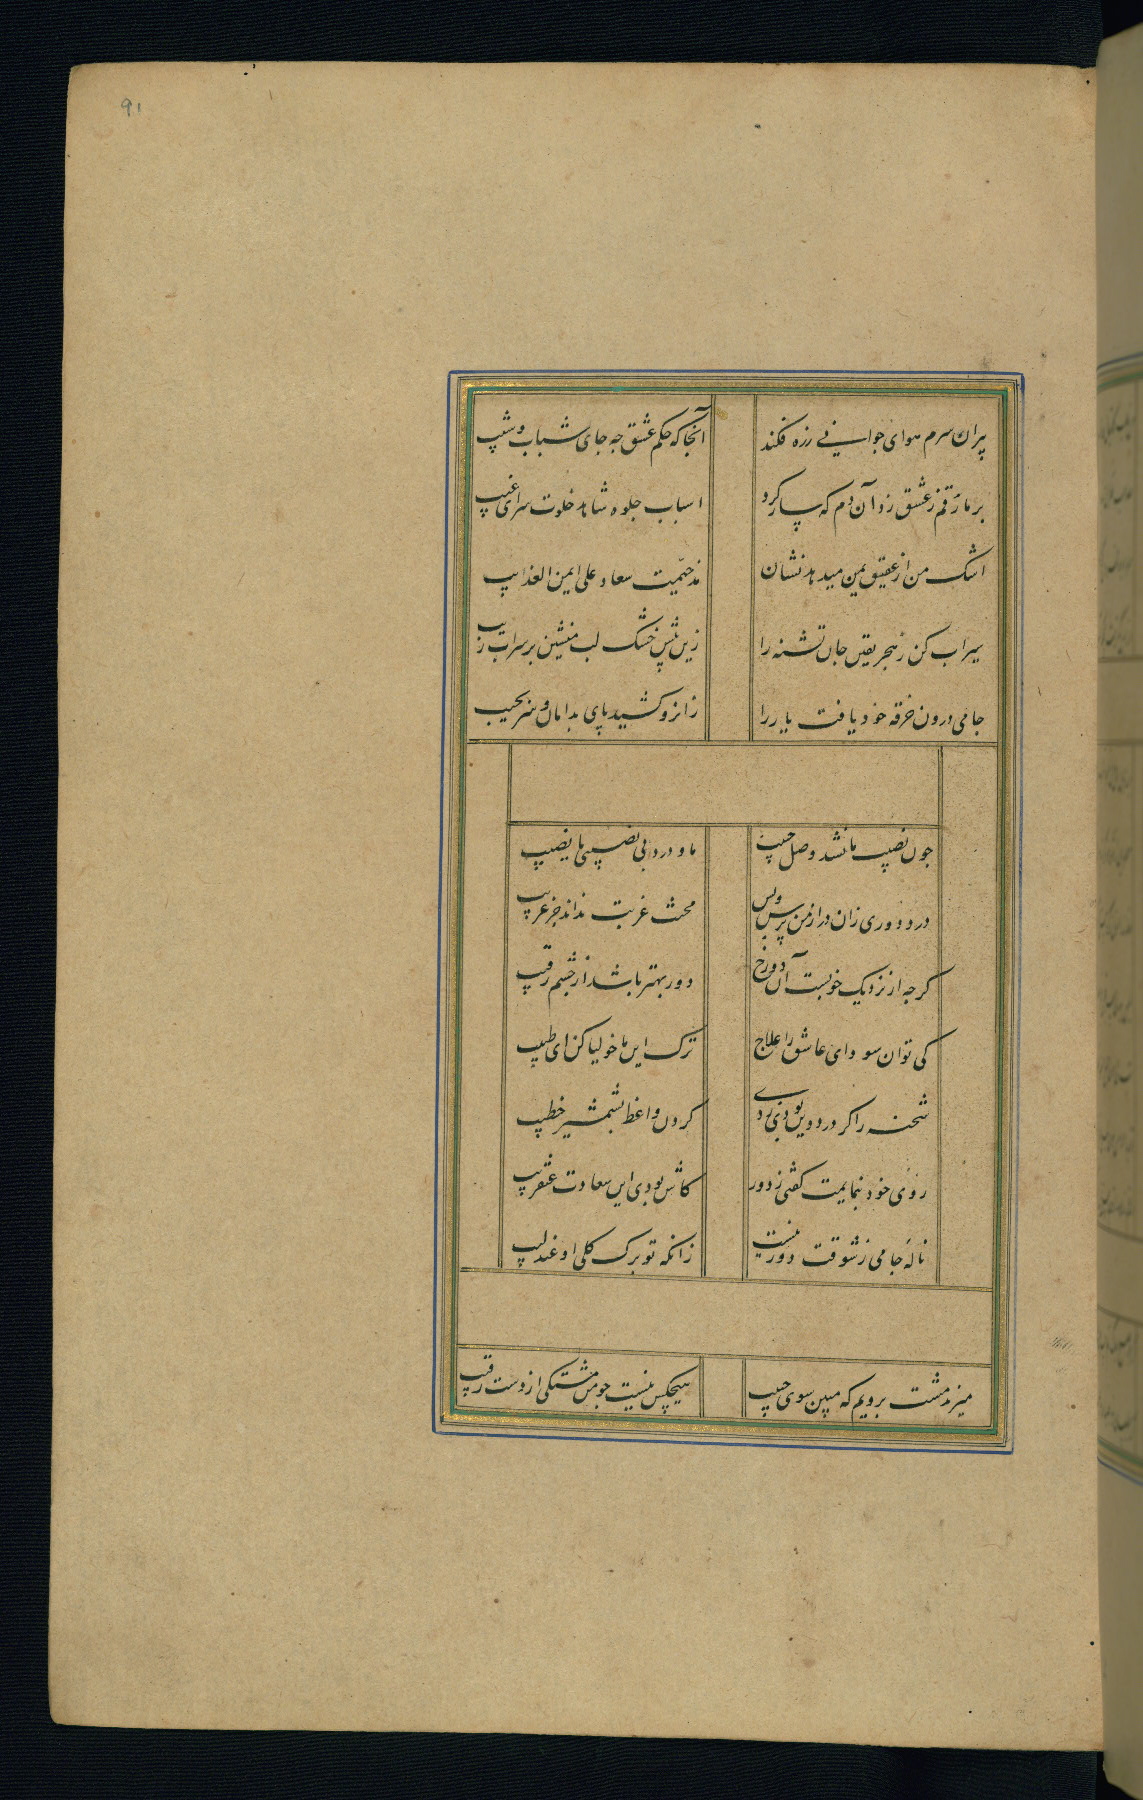 91
پیران سرم هوای جوانی زره فکند
آنجا که حکم عشق چه جای شباب و شیب
بر ما رقم ز عشق زد آن دم که ساز کرد
اسباب جلوه شاهد خلوت سرای غیب
اشک من از عقیق یمن میدهد نشان
مذ خیّمت سعاد علی ایمن العذیب
سیراب کن ز بحر یقین جان تشنه را
زین پیش خشک لب منشین بر سراب ریب
جامی درون خرقه خود یافت یار را
زانرو کشید پای بدامان و سر بجیب
چون نصیب ما نشد وصل حبیب
ما و درد بی نصیبی یا نصیب
درد دوری زان در از من پرس و بس
محنت غربت نداند جز غریب
گرچه از نزدیک خوبست آن دو رخ
دور بهتر باشد از چشم رقیب
کی توان سودای عاشق را علاج
ترک این ماخولیا کن ای طبیب
شحنه را گر درد دین بودی زدی
گردن واعظ بشمشیر خطیب
روی خود بنمایمت گفتی ز دور
کاش بودی این سعادت عنقریب
ناله جامی ز شوقت دور نیست
زانکه تو برگ گلی او عندلیب
میزند مشت برویم که مبین سوی حبیب
هیچکس نیست چو من مشتکی از دست رقیب